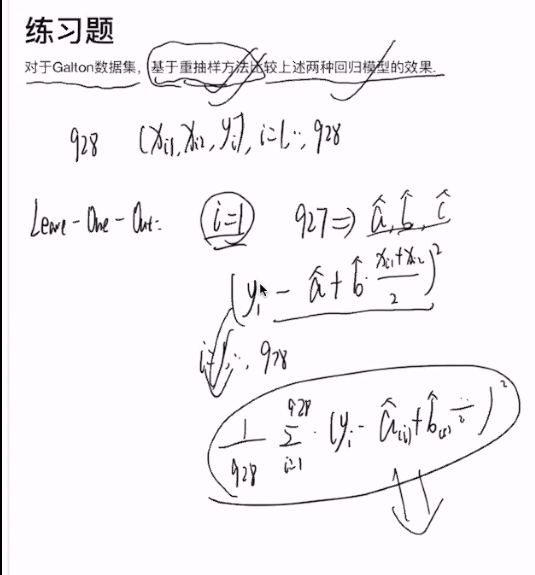 练习题
对于Galton数据集，基于重抽样方法比较上述两种回归模型的效果.
928 (x_{i1}, x_{i2}, y_i), i=1,…, 928
Leave-One-Out: i=1 927 ⇒ â, b̂, ĉ
(y_i - â + b̂ · \frac{x_{i1}+x_{i2}}{2})^2
i=1,…, 928
\frac{1}{928} \sum_{i=1}^{928} · (y_i - â_{(i)} + b̂_{(i)} \frac{..}{2})^2